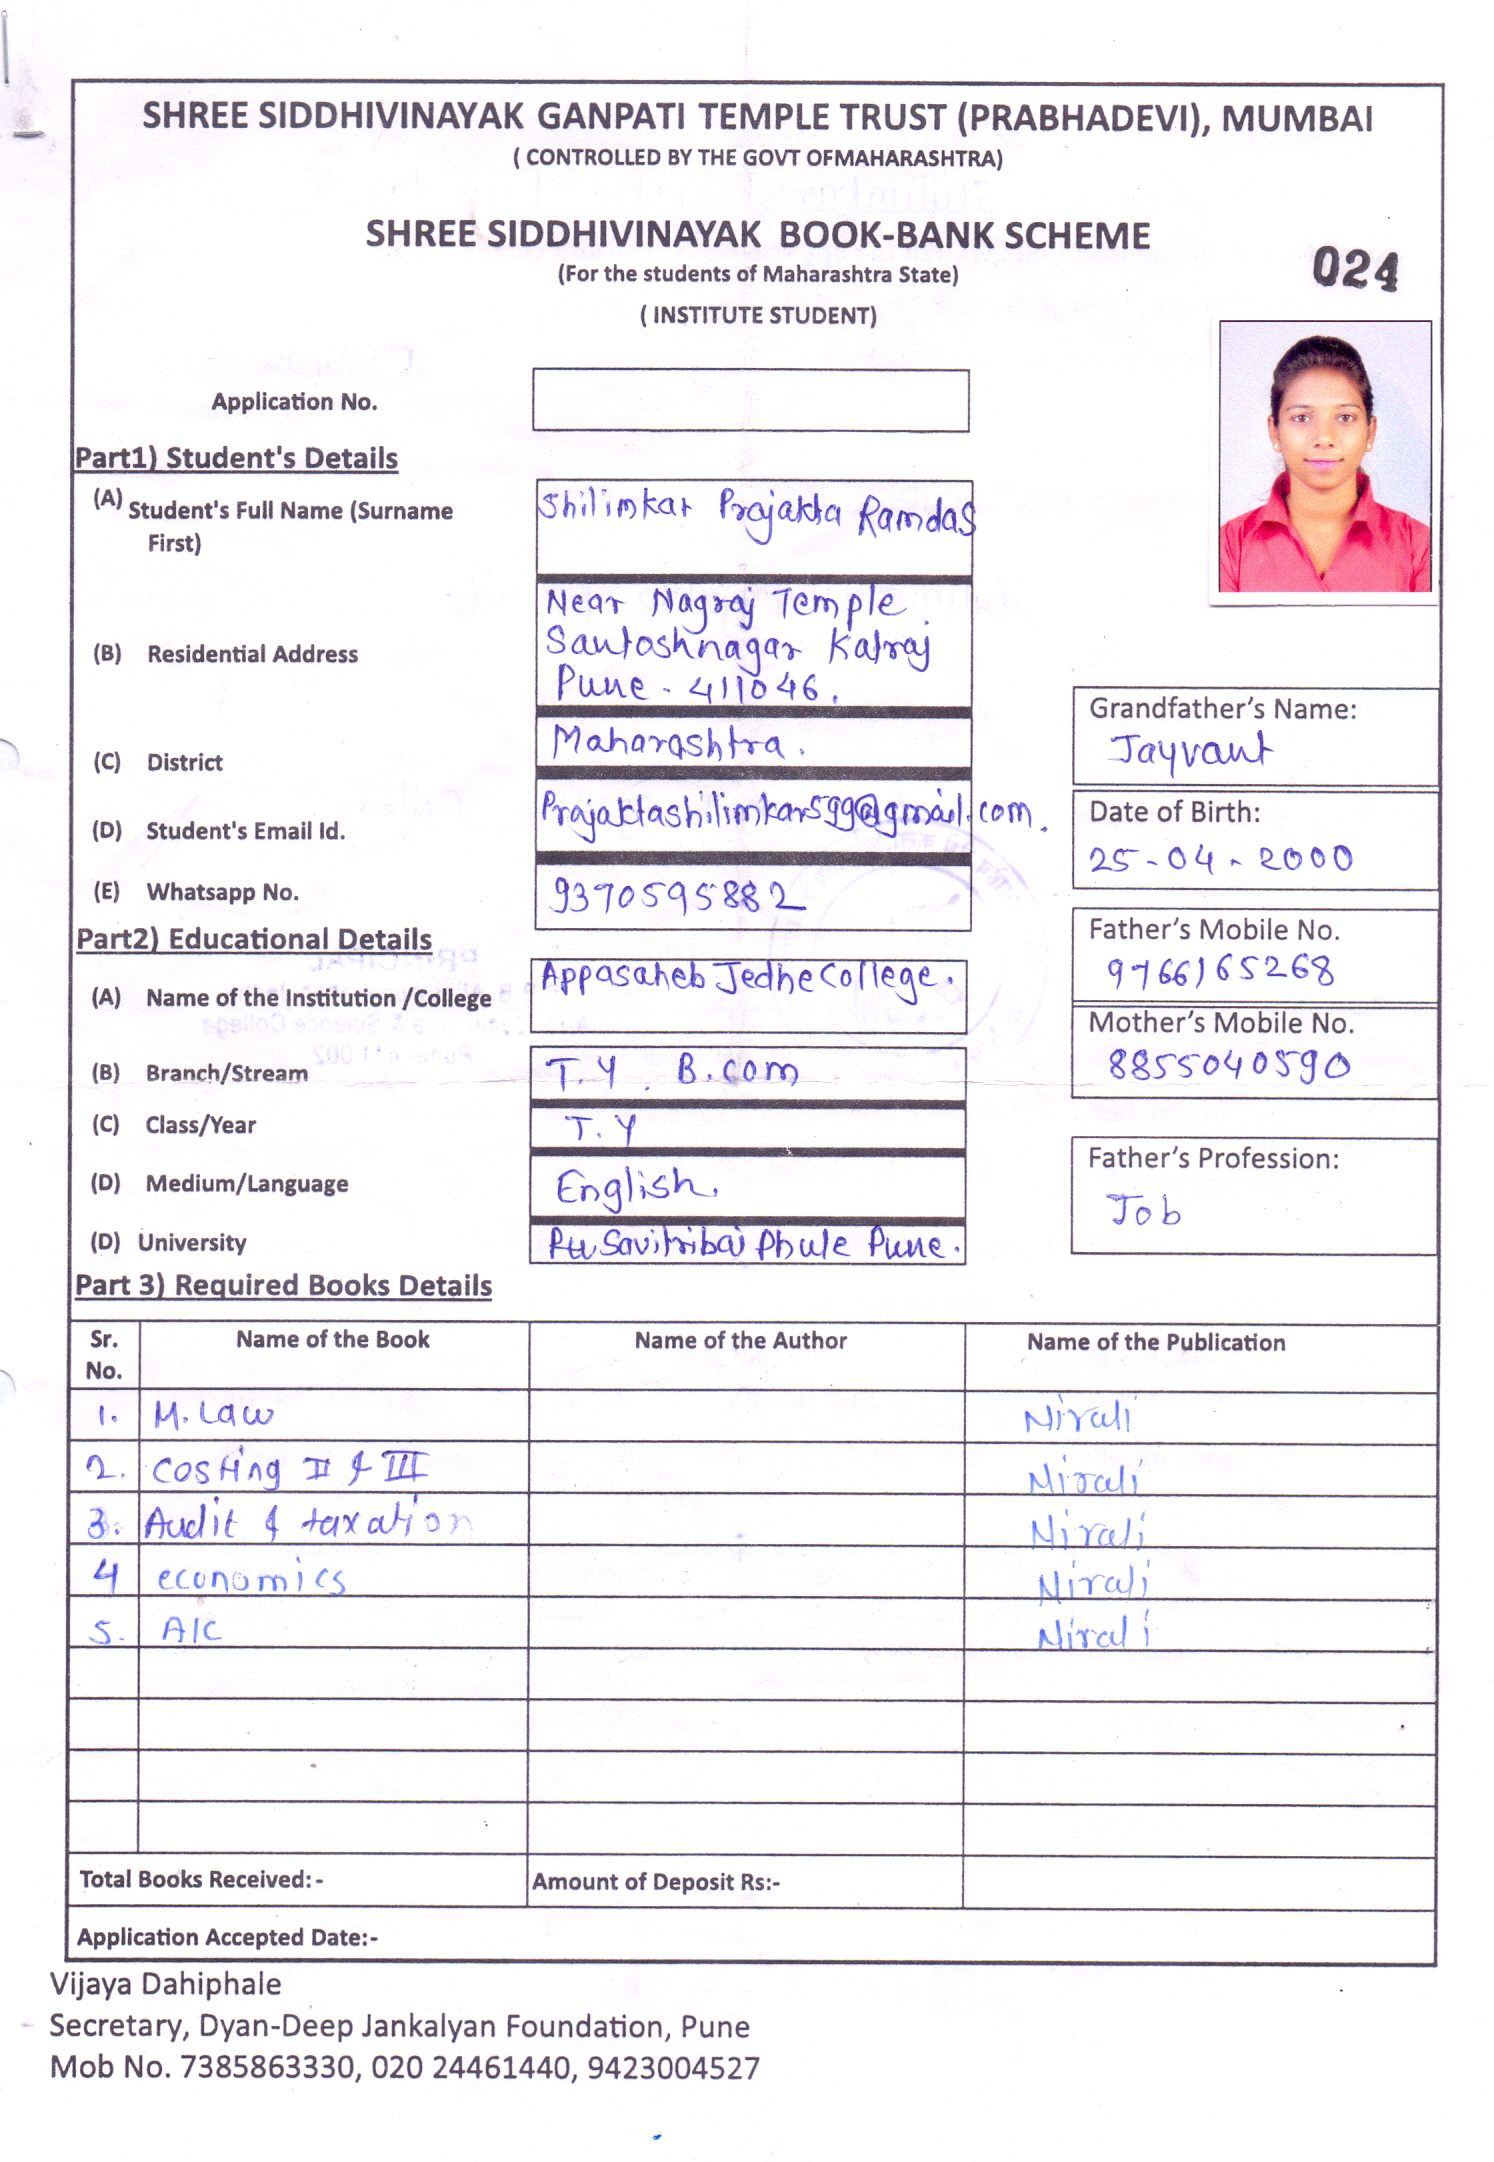 SHREE SIDDHIVINAYAK GANPATI TEMPLE TRUST (PRABHADEVI), MUMBAI
( CONTROLLED BY THE GOVT OFMAHARASHTRA)
SHREE SIDDHIVINAYAK BOOK-BANK SCHEME
(For the students of Maharashtra State)
024
( INSTITUTE STUDENT)
Application No.
Part1) Student's Details
(A) Student's Full Name (Surname First) Shilimkar Prajakta Ramdas
(B) Residential Address
Near Nagraj Temple
Santoshnagar Katraj
Pune - 411046.
Grandfather's Name:
Jayvant
(C) District Maharashtra.
Date of Birth:
25-04-2000
(D) Student's Email Id. Prajaktashilimkar599@gmail.com.
(E) Whatsapp No. 9370595882
Father's Mobile No.
9766165268
Part2) Educational Details
(A) Name of the Institution /College Appasaheb Jedhe College.
Mother's Mobile No.
8855040590
(B) Branch/Stream T.Y. B.com
(C) Class/Year T.Y
Father's Profession:
Job
(D) Medium/Language English.
(D) University Savitribai Phule Pune.
Part 3) Required Books Details
Sr. No. Name of the Book Name of the Author Name of the Publication
1. M. Law Nirali
2. Costing II & III Nirali
3. Audit & taxation Nirali
4 economics Nirali
5. A/C Nirali
Total Books Received:- Amount of Deposit Rs:-
Application Accepted Date:-
Vijaya Dahiphale
Secretary, Dyan-Deep Jankalyan Foundation, Pune
Mob No. 7385863330, 020 24461440, 9423004527